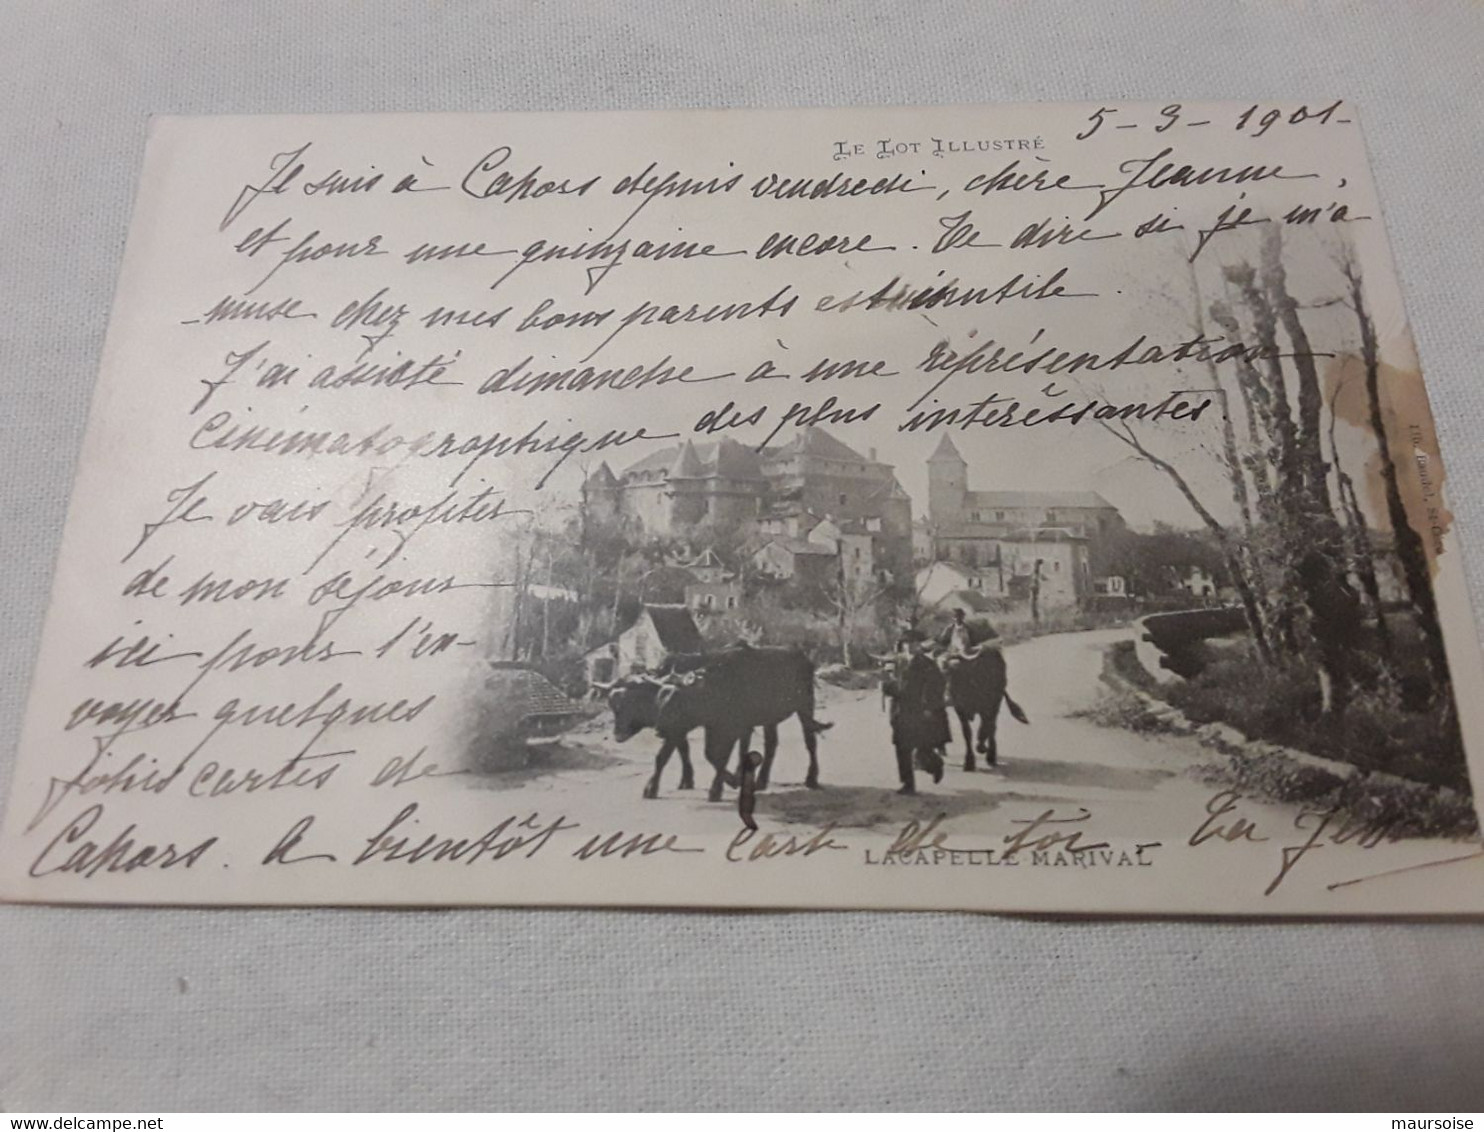 LE LOT ILLUSTRÉ
5-3-1901-
Je suis à Cahors depuis vendredi, chère Jeanne,
et pour une quinzaine encore. Te dire si je m'a
-muse chez mes bons parents est inutile.
J'ai assisté dimanche à une représentation
cinématographique des plus interêssantes.
Je vais profiter
de mon séjour
ici pour t'en-
voyer quelques
jolies cartes de
Cahors. A bientôt une carte de toi. Ta
LACAPELLE MARIVAL
Baudel, St-Céré
delcampe.net
maursoise